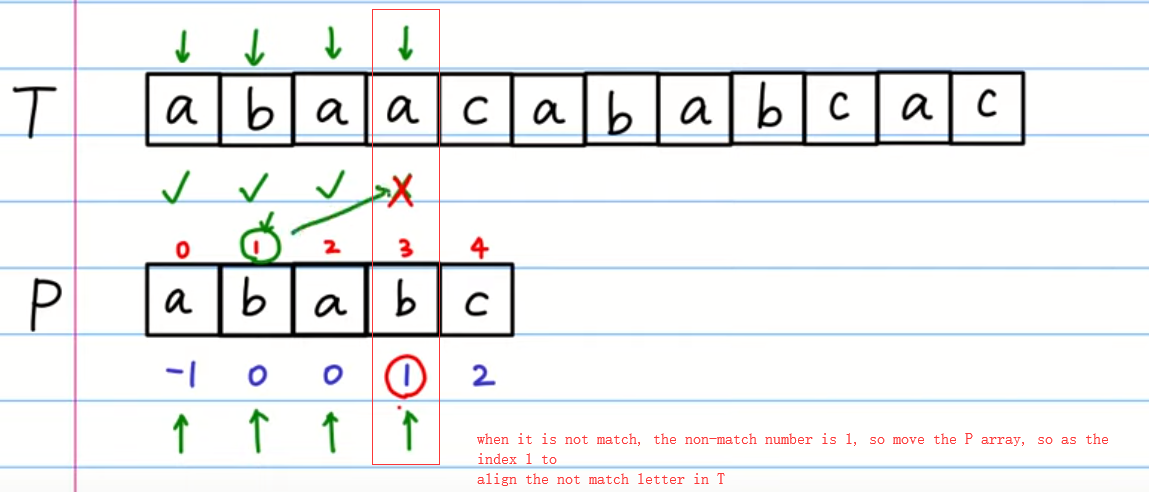 T a b a a c a b a b c a c
0 1 2 3 4
P a b a b c
-1 0 0 1 2
when it is not match, the non-match number is 1, so move the P array, so as the
index 1 to
align the not match letter in T